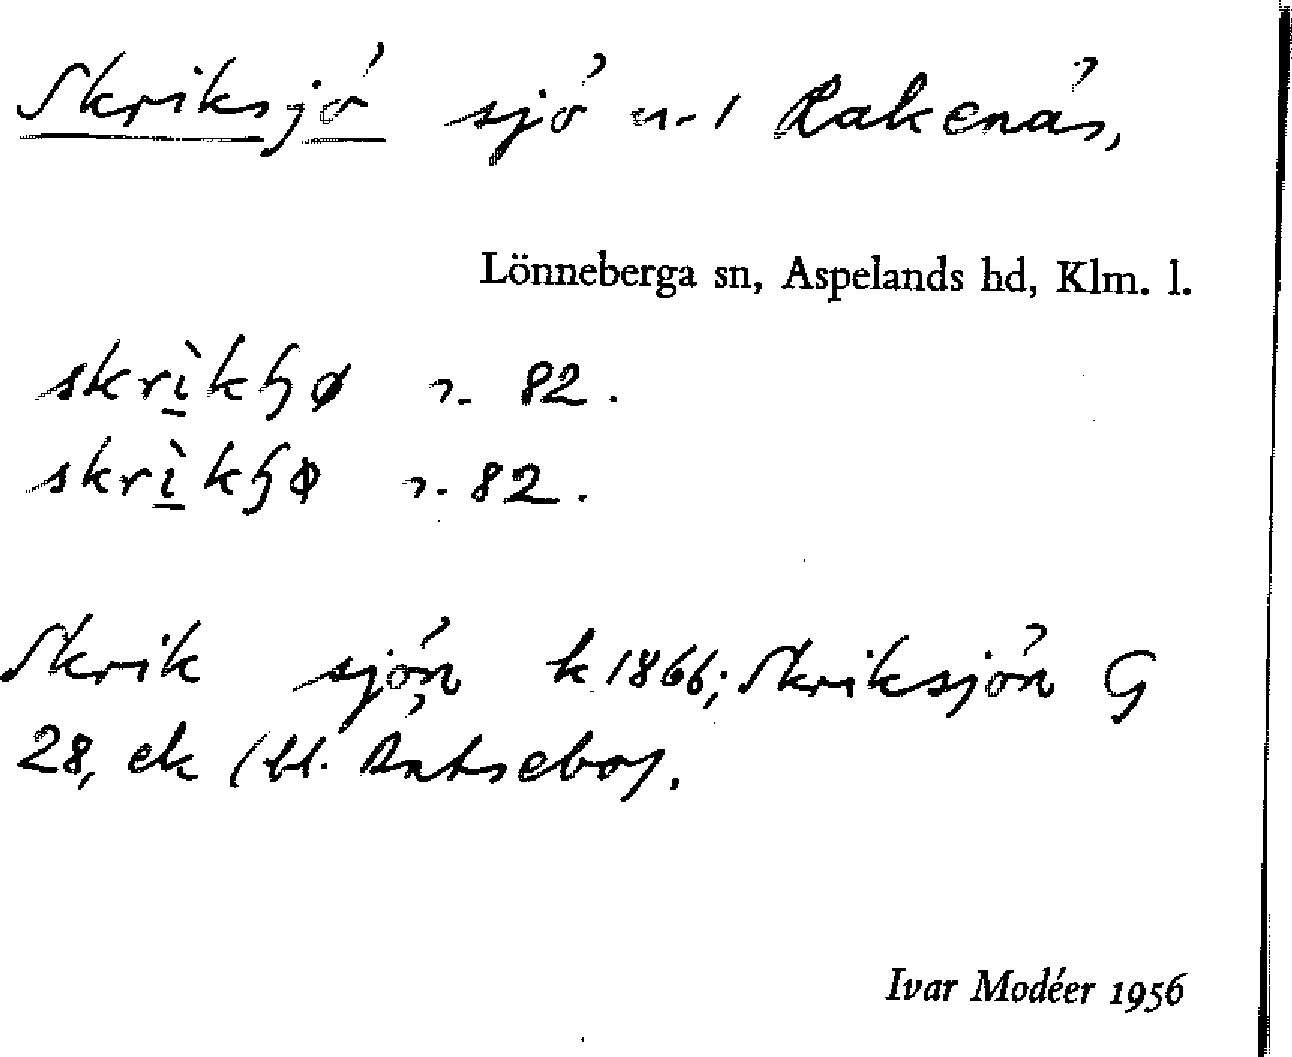 Skriksjö sjö n. / Rakenäs,
Lönneberga sn, Aspelands hd, Klm. l.
skrìkɧø n. 82.
skrìkɧɵ n. 82.
Skrik sjön k 1866; Skriksjön G
28, ek (bl.
Ivar Modéer 1956